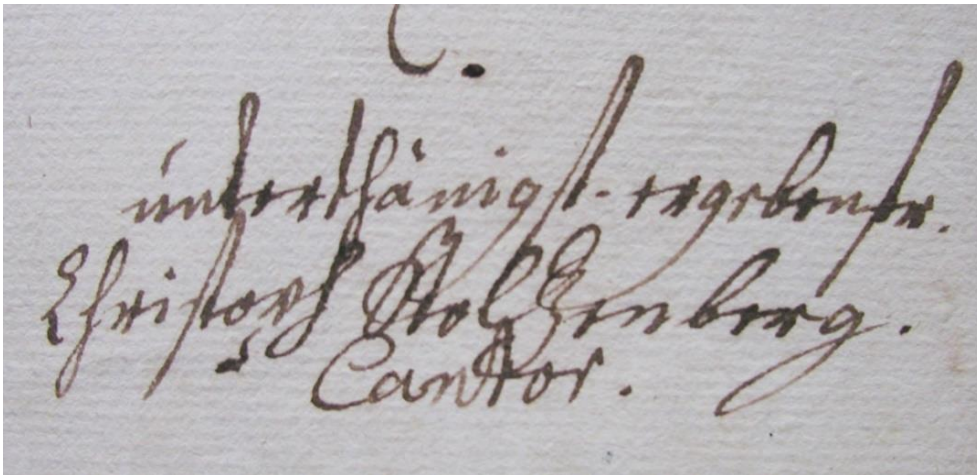 C.
unterthänigst-ergebenster.
Christoph Stoltzenberg.
Cantor.